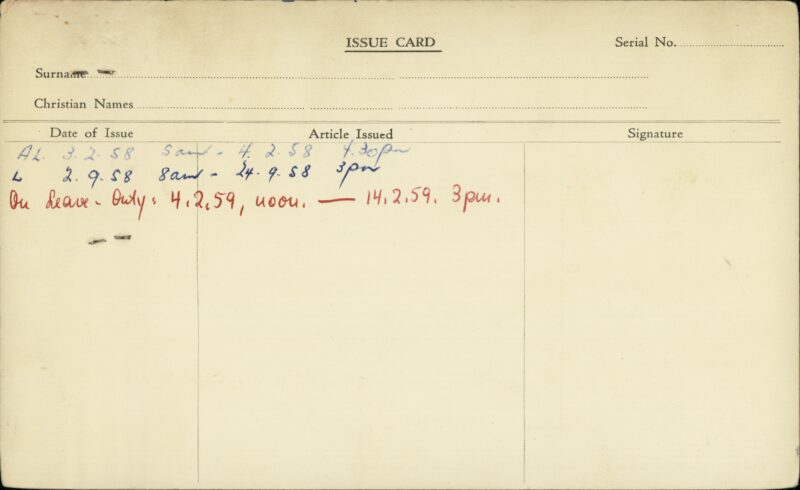 ISSUE CARD
Serial No.
Surname
Christian Names
Date of Issue Article Issued Signature
AL 3.2.58 8am - 4.2.58 4.30pm
L 2.9.58 8am - 24.9.58 3pm
On Leave - Duty: 4.2.59, noon. — 14.2.59. 3pm.